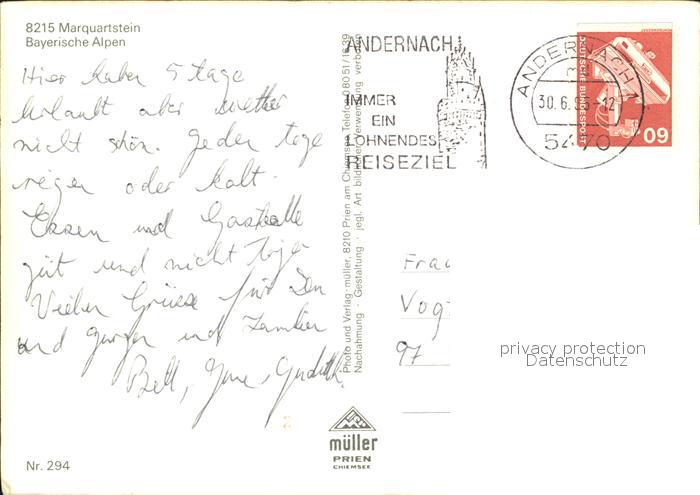 8215 Marquartstein
Bayerische Alpen
Hier haben 5 tage
Urlaubt aber wetter
nicht schön. Jeden tage
regen oder kalt.
Essen und
gut und nicht
Vielen Grüsse für Den
und und
Bell,
Nr. 294
Photo und Verlag · müller, 8210 Prien am Chiemsee, Telefon 08051/1639
Nachahmung · Gestaltung · jegl. Art bildlicher Verwendung verboten
müller
PRIEN
CHIEMSEE
ANDERNACH
IMMER
EIN
LOHNENDES
REISEZIEL
ANDERNACH 1
30.6. -12
5470
DEUTSCHE BUNDESPOST
60
Frau
Vog
97
privacy protection
Datenschutz